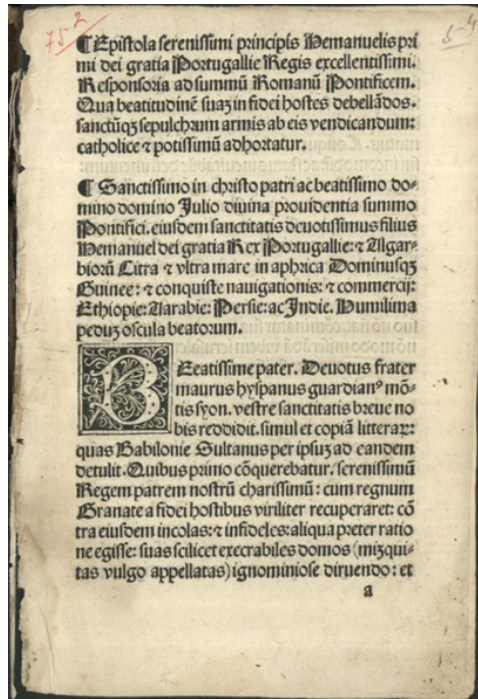 75 2
5-4
¶ Epistola serenissimi principis Hemanuelis pri
mi dei gratia Portugallie Regis excellentissimi.
Responsoria ad summū Romanū Pontificem.
Qua beatitudinē suaȝ in fidei hostes debellādos.
sanctūqȝ sepulchrum armis ab eis vendicandum:
catholice ⁊ potissimū adhortatur.
¶ Sanctissimo in christo patri ac beatissimo do-
mino domino Julio diuina prouidentia summo
Pontifici. eiusdem sanctitatis deuotissimus filius
Hemanuel dei gratia Rex Portugallie: ⁊ Algar-
biorū Citra ⁊ vltra mare in aphrica Dominusqȝ
Guinee: ⁊ conquiste nauigationis: ⁊ commercij:
Ethiopie: Aarabie: Persie: ac Indie. Humilima
peduȝ oscula beatorum.
BEeatissime pater. Deuotus frater
maurus hyspanus guardianꝰ mō-
tis syon. vestre sanctitatis breue no
bis reddidit. simul et copiā litterarꝫ:
quas Babilonie Sultanus per ipsuȝ ad eandem
detulit. Quibus primo cōquerebatur. serenissimū
Regem patrem nostrū charissimū: cum regnum
Granate a fidei hostibus viriliter recuperaret: cō
tra eiusdem incolas: ⁊ infideles: aliqua preter ratio
ne egisse: suas scilicet execrabiles domos (mizqui-
tas vulgo appellatas) ignominiose diruendo: et
a